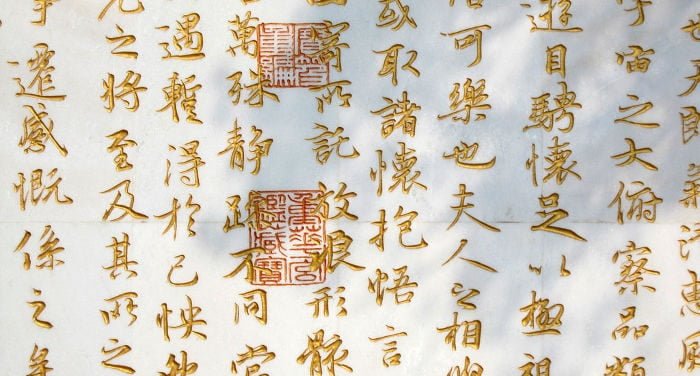 也天朗氣清惠風
宇宙之大俯察品類
遊目騁懷足以極視
信可樂也夫人之相與
或取諸懷抱悟言
因寄所託放浪形骸
萬殊靜躁不同當
遇暫得於己快然
老之將至及其所之
事遷感慨係之矣